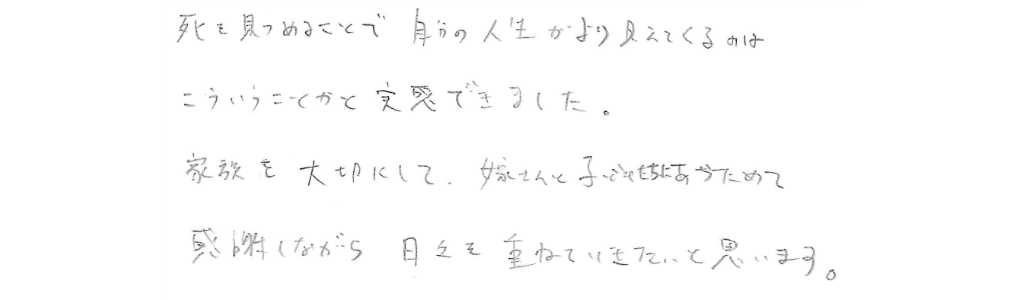 死を見つめることで 自分の人生がより見えてくるのは
こういうことかと実感できました。
家族を大切にして、嫁さんと子どもたちにあらためて
感謝しながら 日々を重ねていきたいと思います。